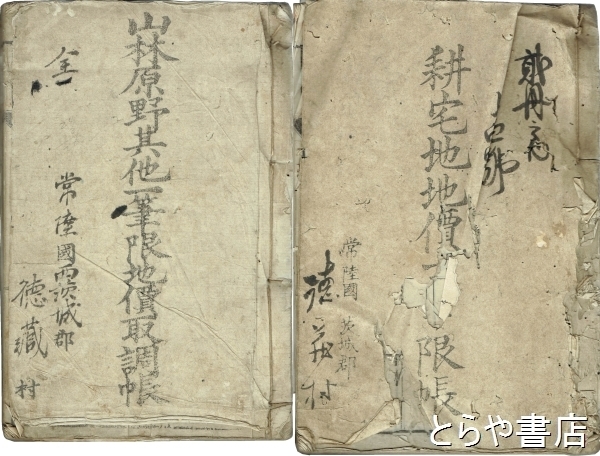 山林原野其他一筆限地價取調帳
全
常陸國西茨城郡
徳蔵村
耕宅地地價
限帳
常陸國
茨城郡
徳蔵村
とらや書店